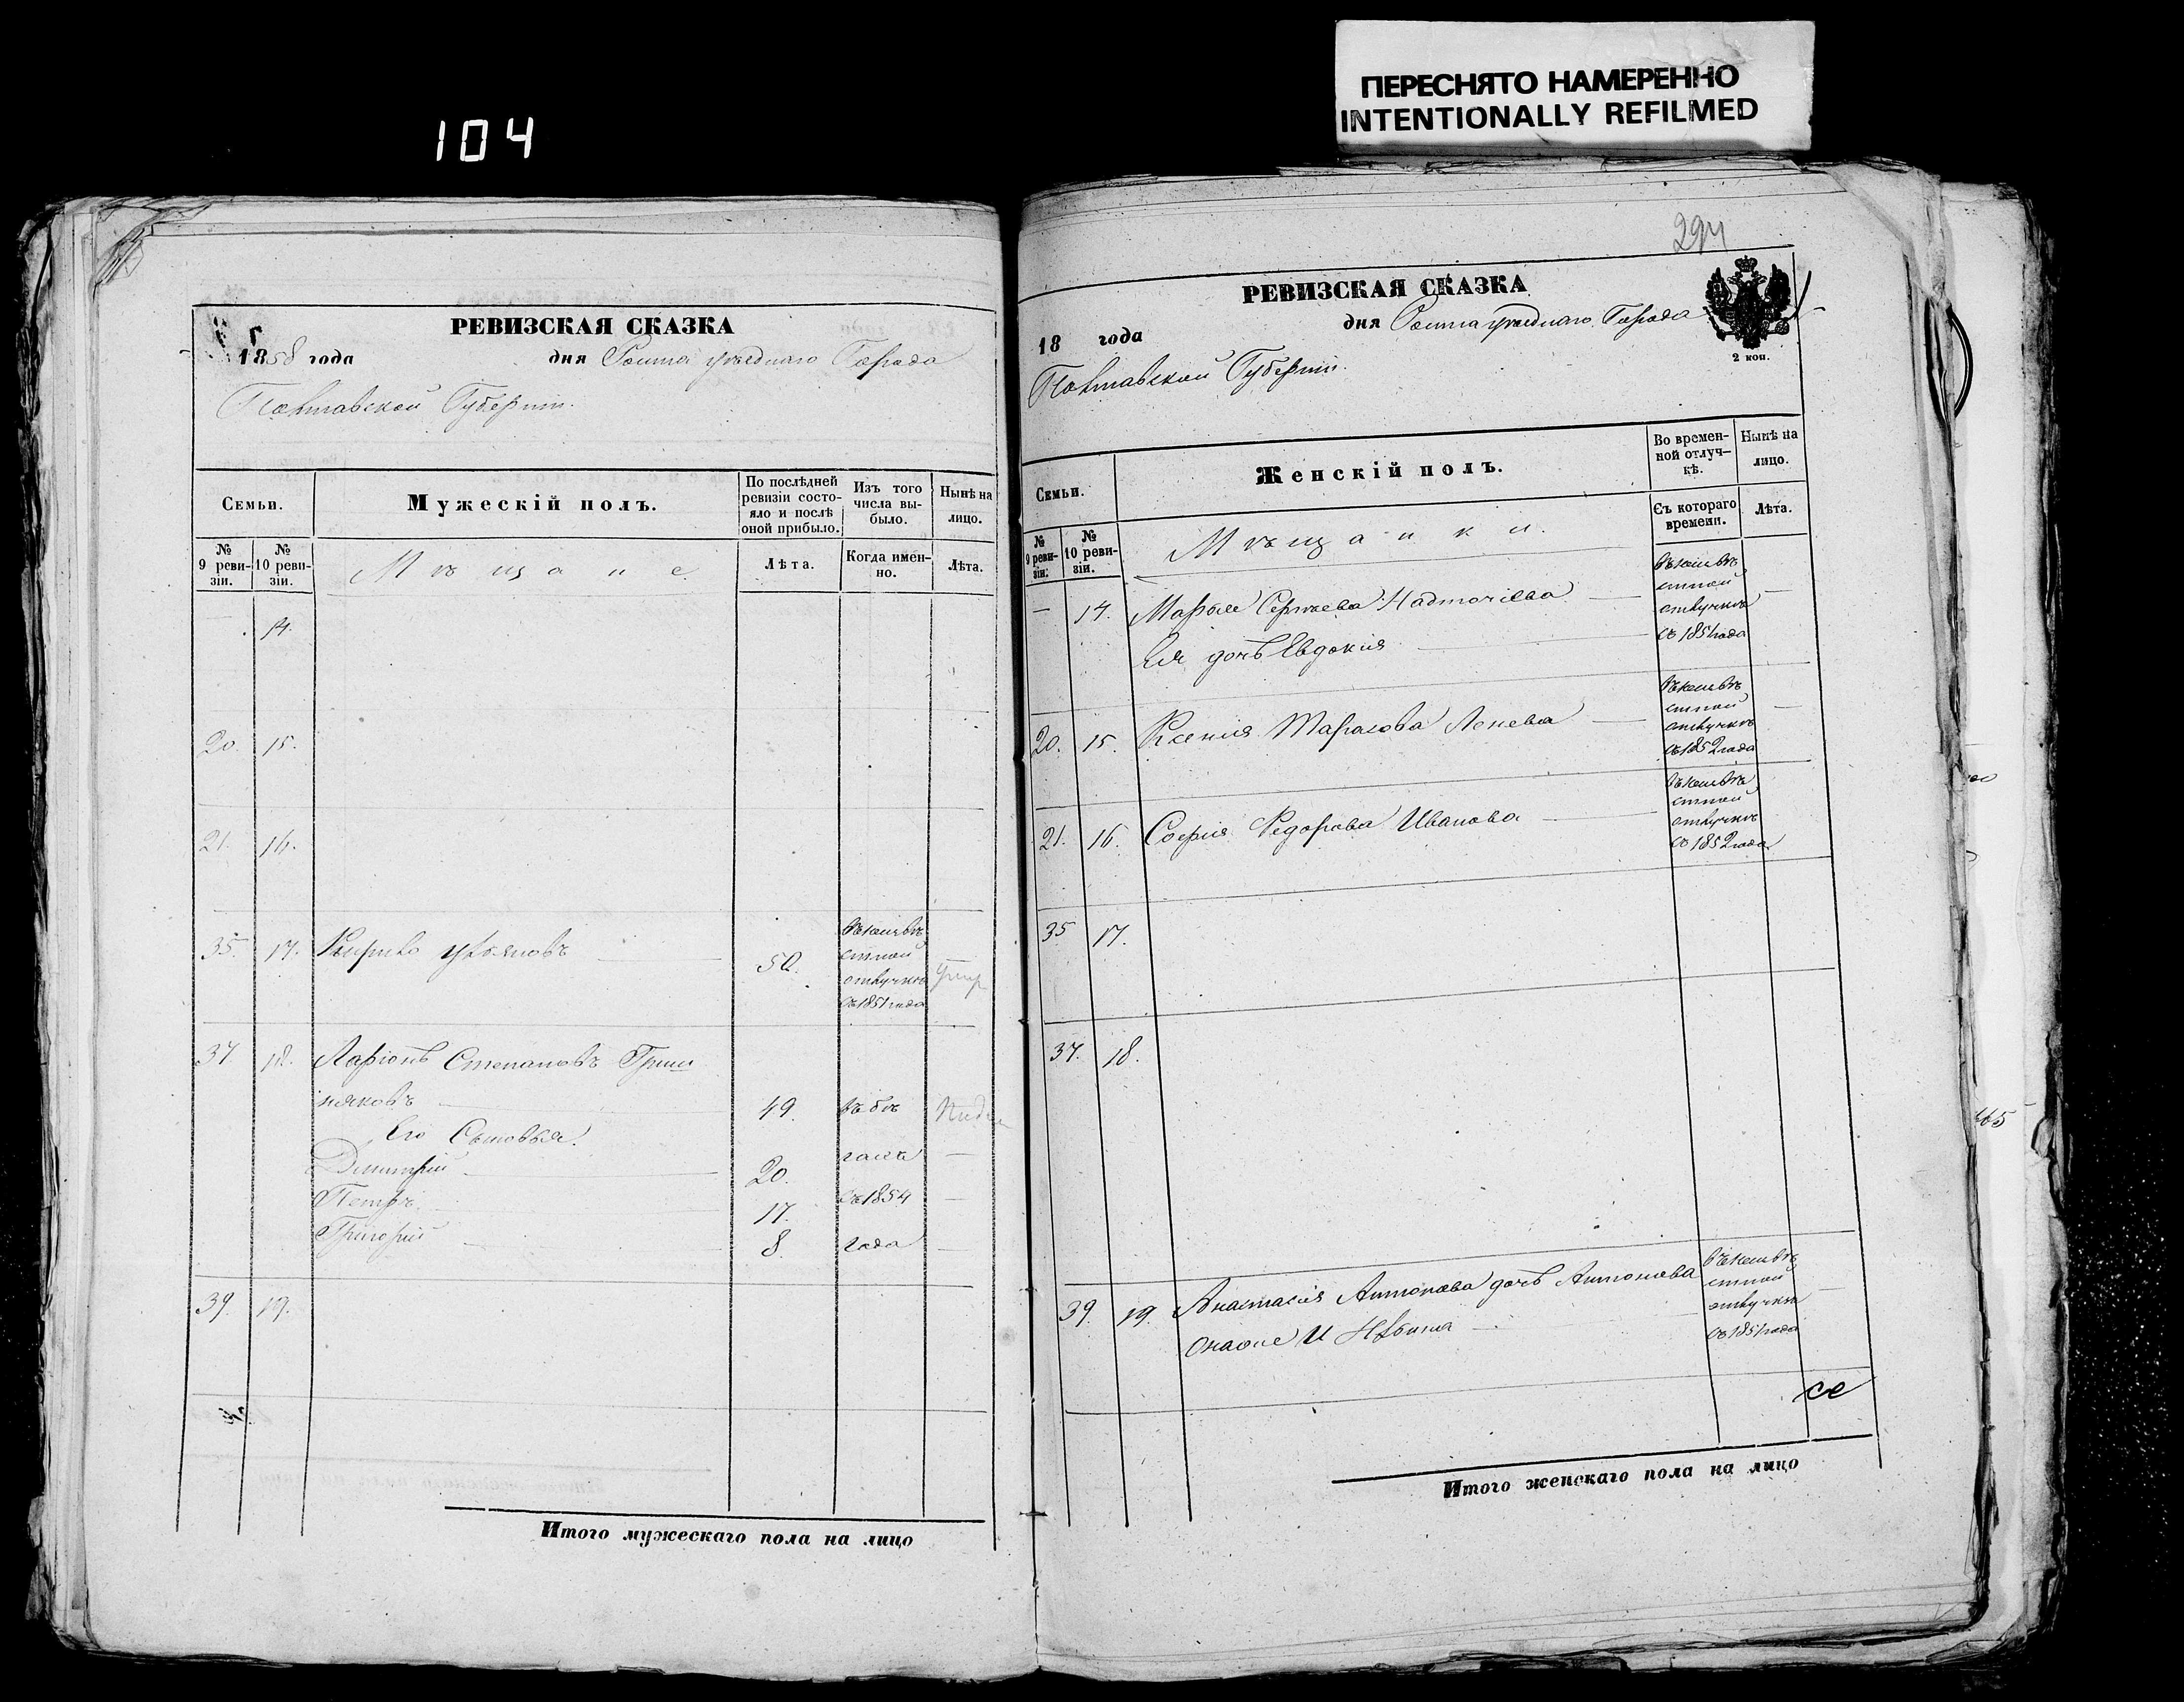 104
ПЕРЕСНЯТО НАМЕРЕННО
INTENTIONALLY REFILMED
РЕВИЗСКАЯ СКАЗКА
1858 года дня Ромна уѣзднаго Города
Полтавской Губерніи.
Семьи.
Мужескій полъ.
По послѣдней ревизіи состояло и послѣ оной прибыло.
Изъ того числа выбыло.
Нынѣ на лицо.
№ 9 ревизіи.
№ 10 ревизіи.
Мѣщане
Лѣта.
Когда именно.
Лѣта.
14.
20. 15.
21. 16.
35. 17. Кирило Ульяновъ 50.
въ неизвѣ
стной
отлучкѣ
съ 1851 года
37 18. Ларіонъ Степановъ
няковъ 49. въ бѣ
Его Сыновья.
Дмитрій 20. гахъ
Петръ 17. съ 1854
Григорій 8. года
39. 19.
294
РЕВИЗСКАЯ СКАЗКА
18 года дня Ромна уѣзднаго Города
Полтавской Губерніи.
2 коп.
Семьи.
Женскій полъ.
Во временной отлучкѣ.
Нынѣ на лицо.
№ 9 ревизіи.
№ 10 ревизіи.
Мѣщанки.
Съ котораго времени.
Лѣта.
— 14. Марья Сергѣева Надточіева
Ея дочь Евдокія
въ неизвѣ
стной
отлучкѣ
съ 1851 года
20. 15. Ксенія Тарасова
въ неизвѣ
стной
отлучкѣ
съ 1852 года
21. 16. Софія Федорова Иванова
въ неизвѣ
стной
отлучкѣ
съ 1852 года
35 17.
37. 18.
39. 19. Анастасія Антонова дочь Антонова
онаже и
въ неизвѣ
стной
отлучкѣ
съ 1851 года
Итого мужескаго пола на лицо
Итого женскаго пола на лицо